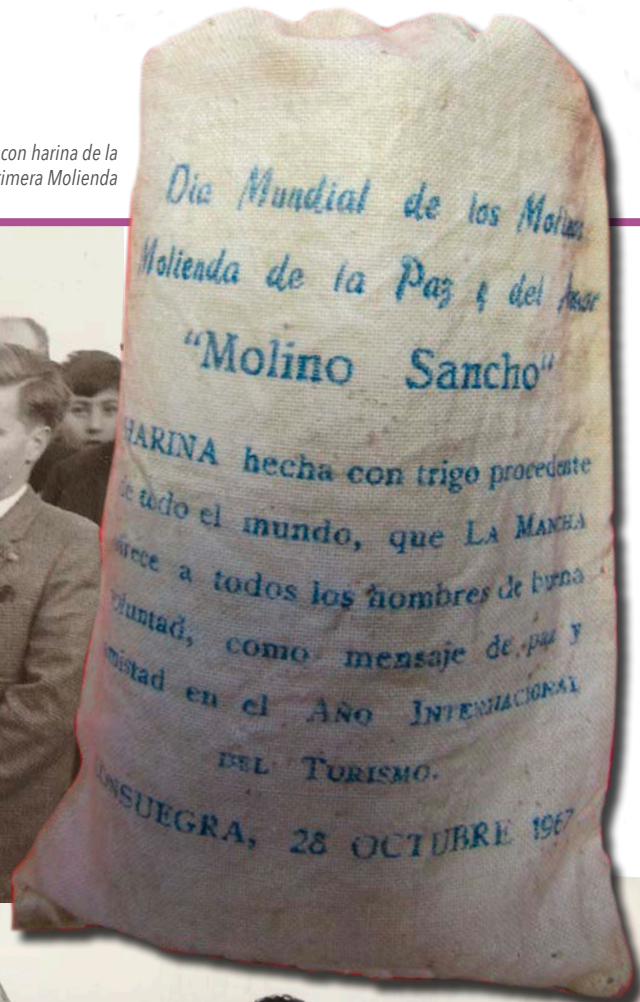 con harina de la
rimera Molienda
Dia Mundial de los Molinos
Molienda de la Paz y del Amor
"Molino Sancho"
HARINA hecha con trigo procedente
de todo el mundo, que LA MANCHA
ofrece a todos los hombres de buena
voluntad, como mensaje de paz y
amistad en el AÑO INTERNACIONAL
DEL TURISMO.
CONSUEGRA, 28 OCTUBRE 1967